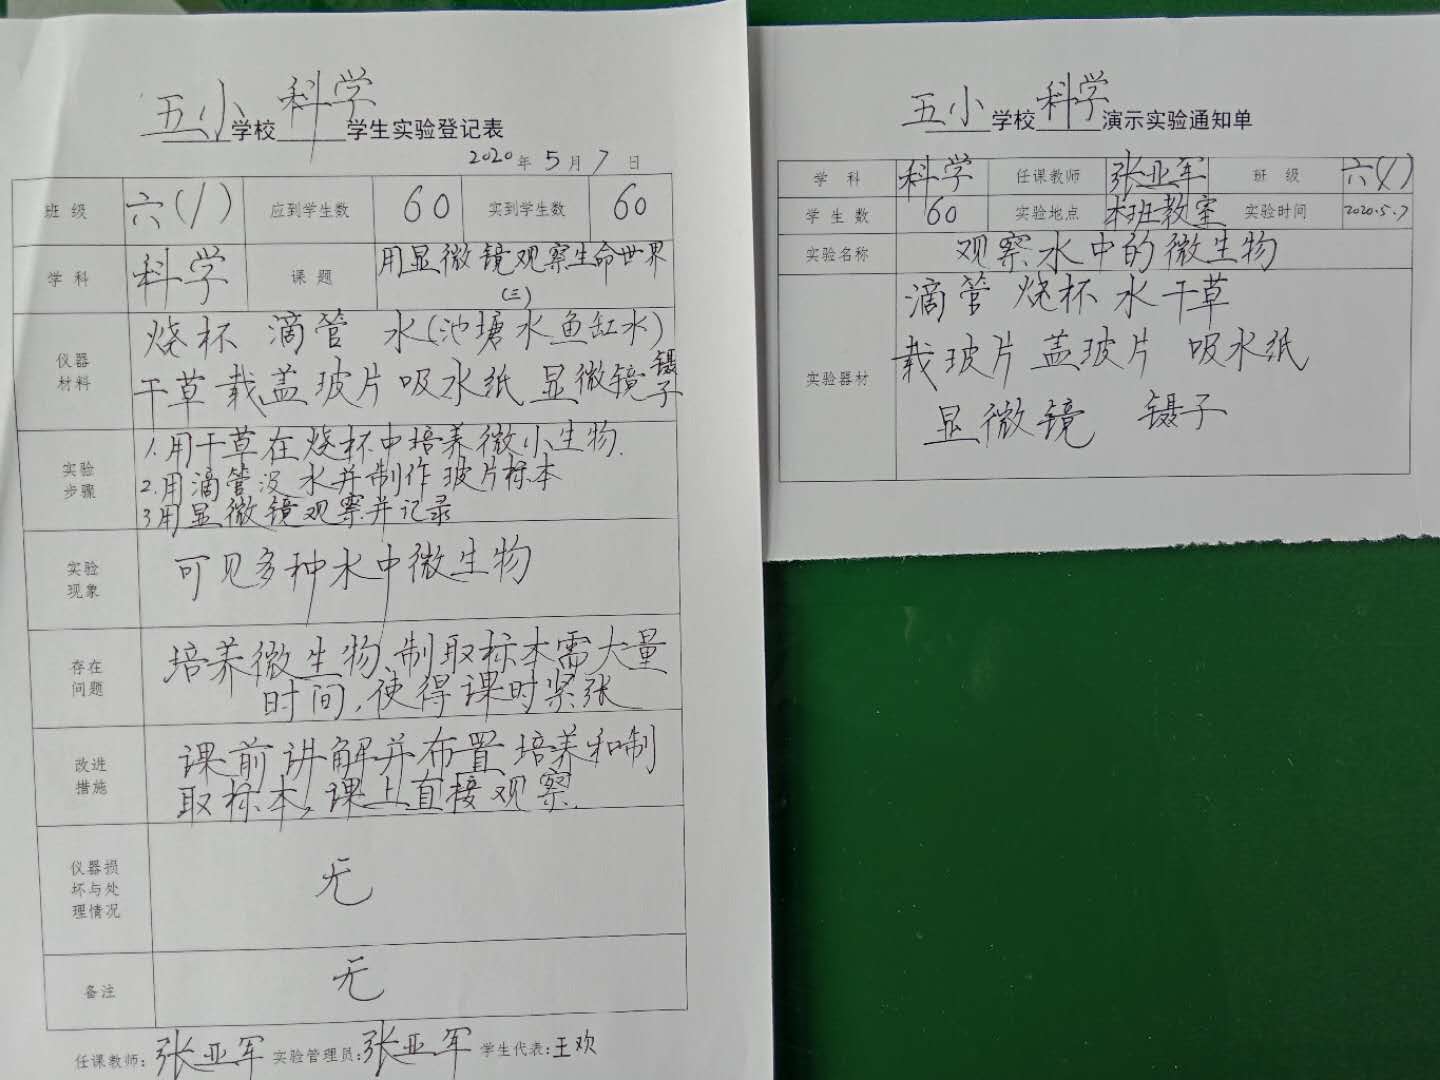 五小学校科学学生实验登记表
2020年5月7日
班级 六(1) 应到学生数 60 实到学生数 60
学科 科学 课题 用显微镜观察生命世界
(三)
仪器材料 烧杯 滴管 水(池塘水鱼缸水)
干草 载盖玻片 吸水纸 显微镜 镊子
实验步骤 1.用干草在烧杯中培养微小生物.
2.用滴管 水并制作玻片标本
3用显微镜观察并记录
实验现象 可见多种水中微生物
存在问题 培养微生物、制取标本需大量
时间,使得课时紧张
改进措施 课前讲解并布置培养和制
取标本,课上直接观察.
仪器损坏与处理情况 无
备注 无
任课教师:张亚军 实验管理员:张亚军 学生代表:王欢
五小学校科学演示实验通知单
学科 科学 任课教师 张亚军 班级 六(1)
学生数 60 实验地点 本班教室 实验时间 2020.5.7
实验名称 观察水中的微生物
实验器材 滴管 烧杯 水 干草
载玻片 盖玻片 吸水纸
显微镜 镊子